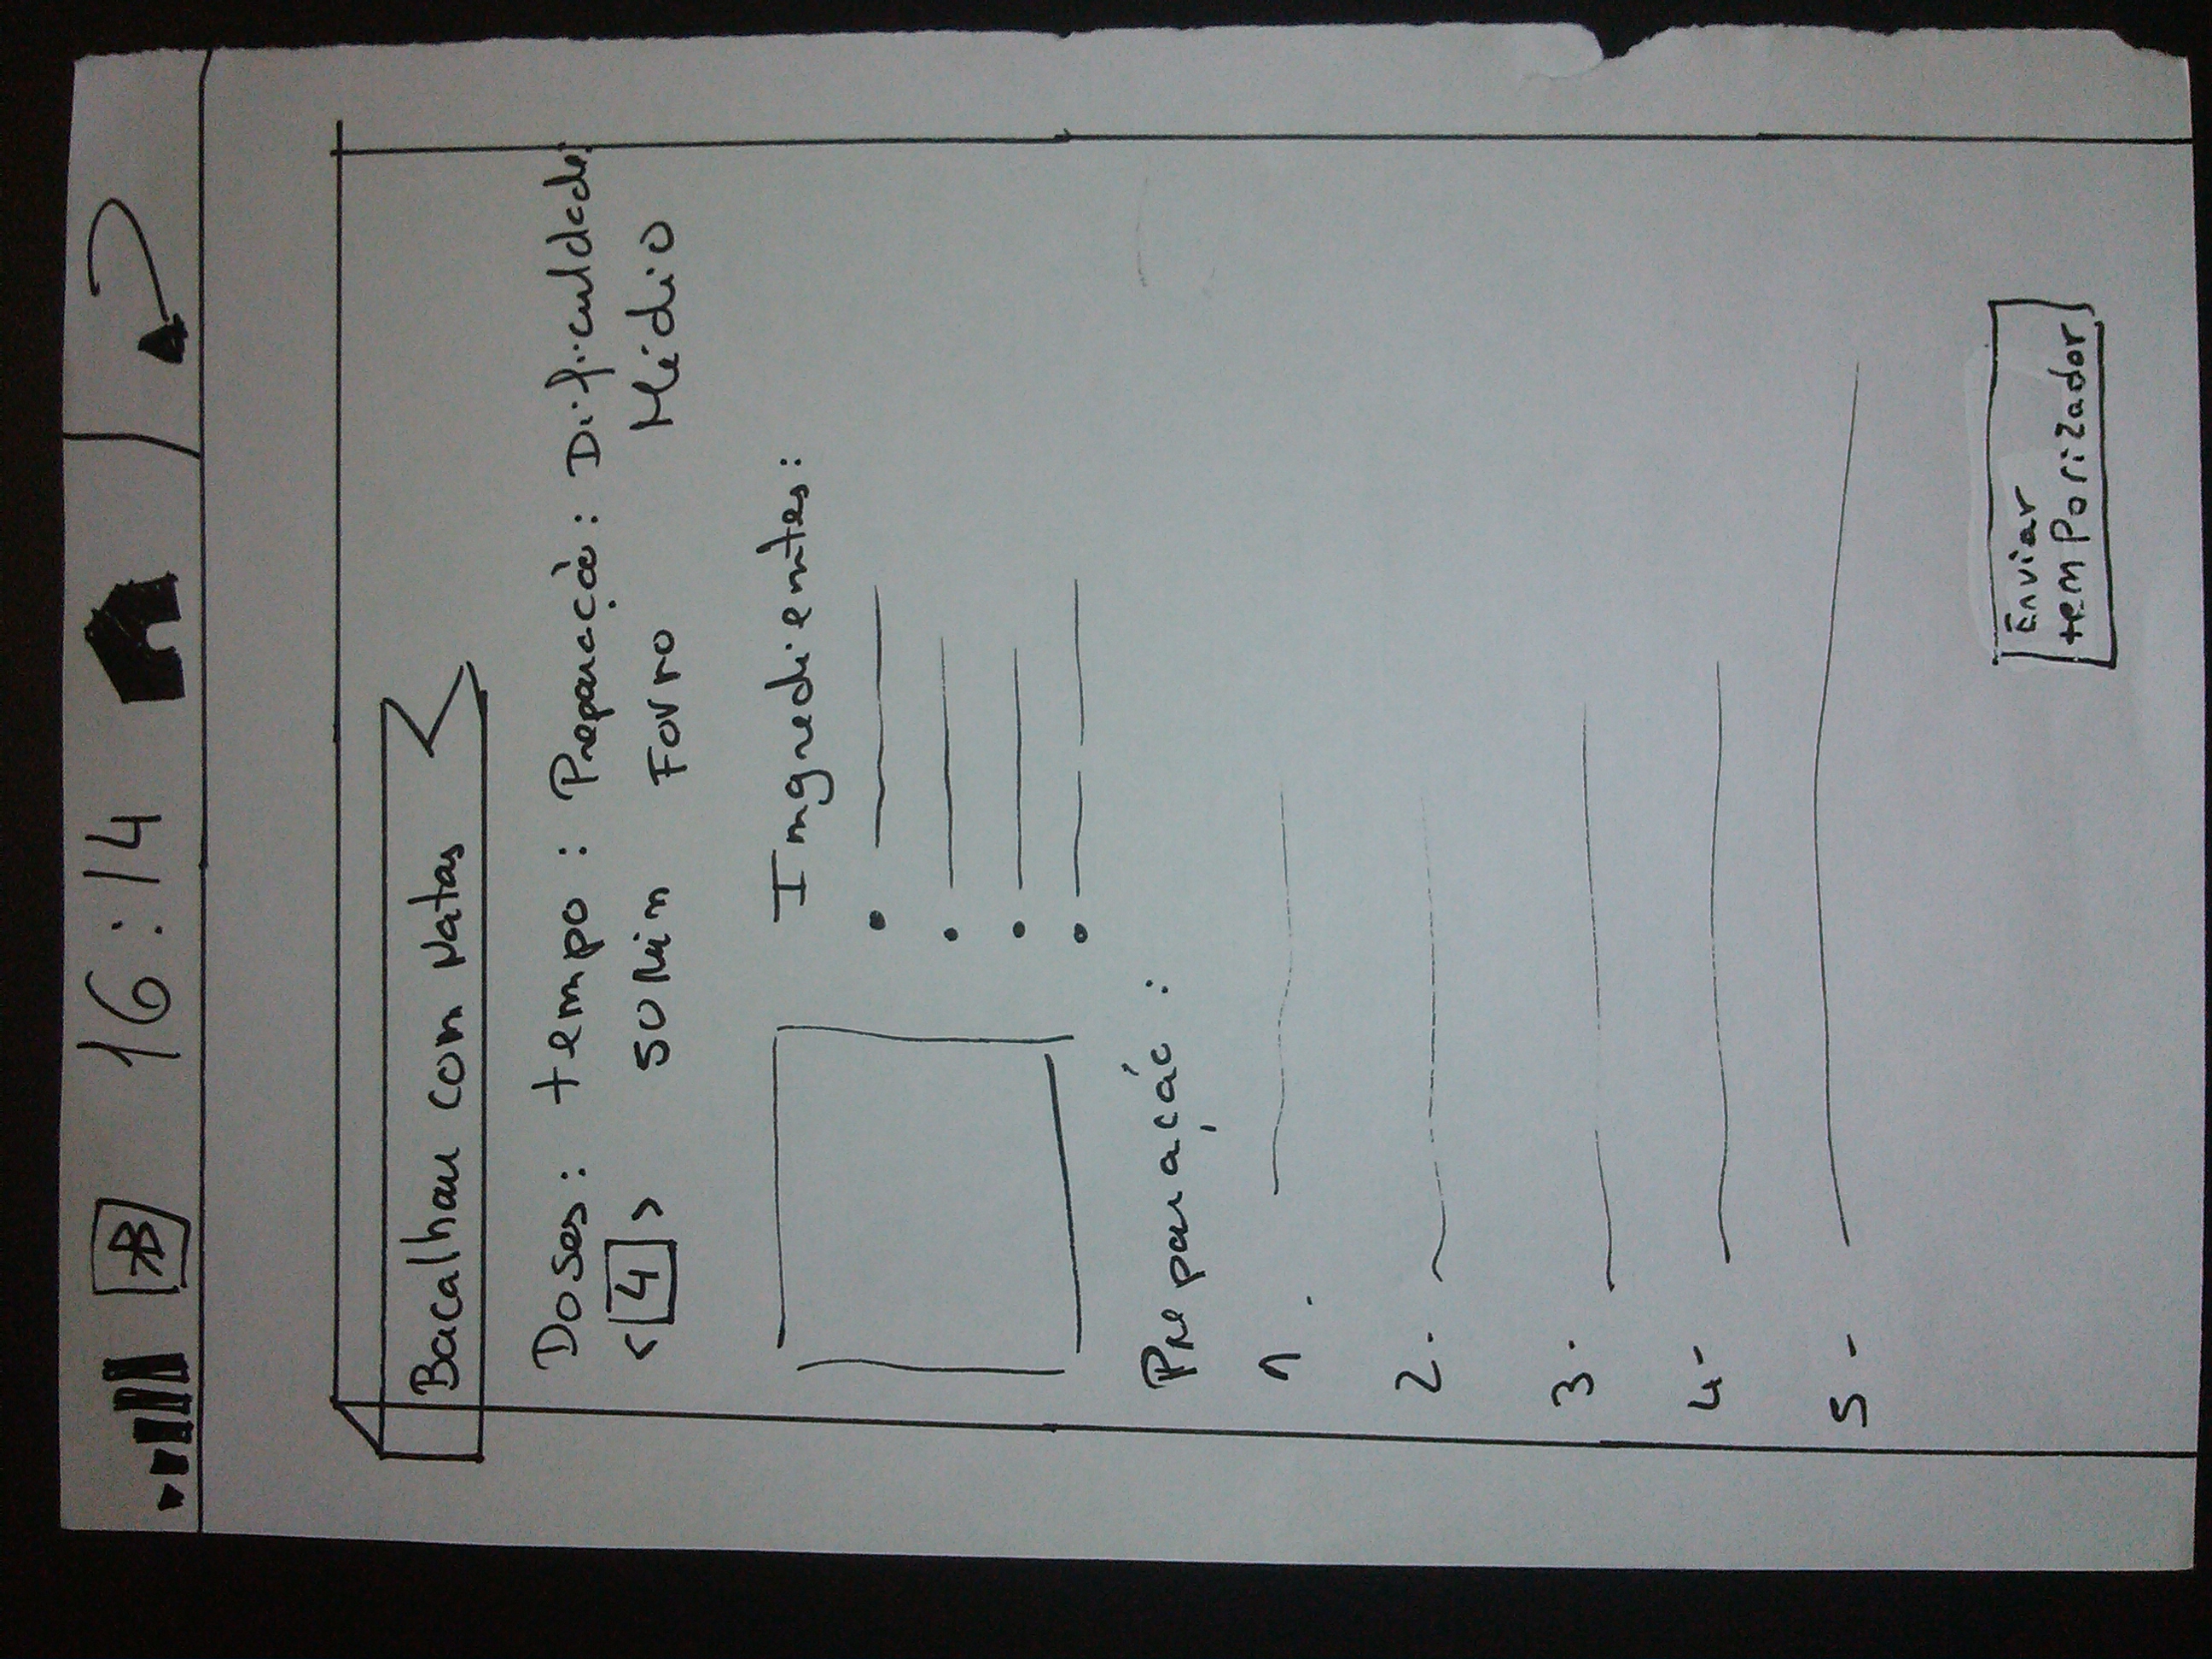 16:14
Bacalhau com Natas
Doses: tempo: Preparação: Dificuldade:
<4> 50Min Forno Médio
Ingredientes:
Preparação:
1.
2.
3.
4-
5-
Enviar
temporizador